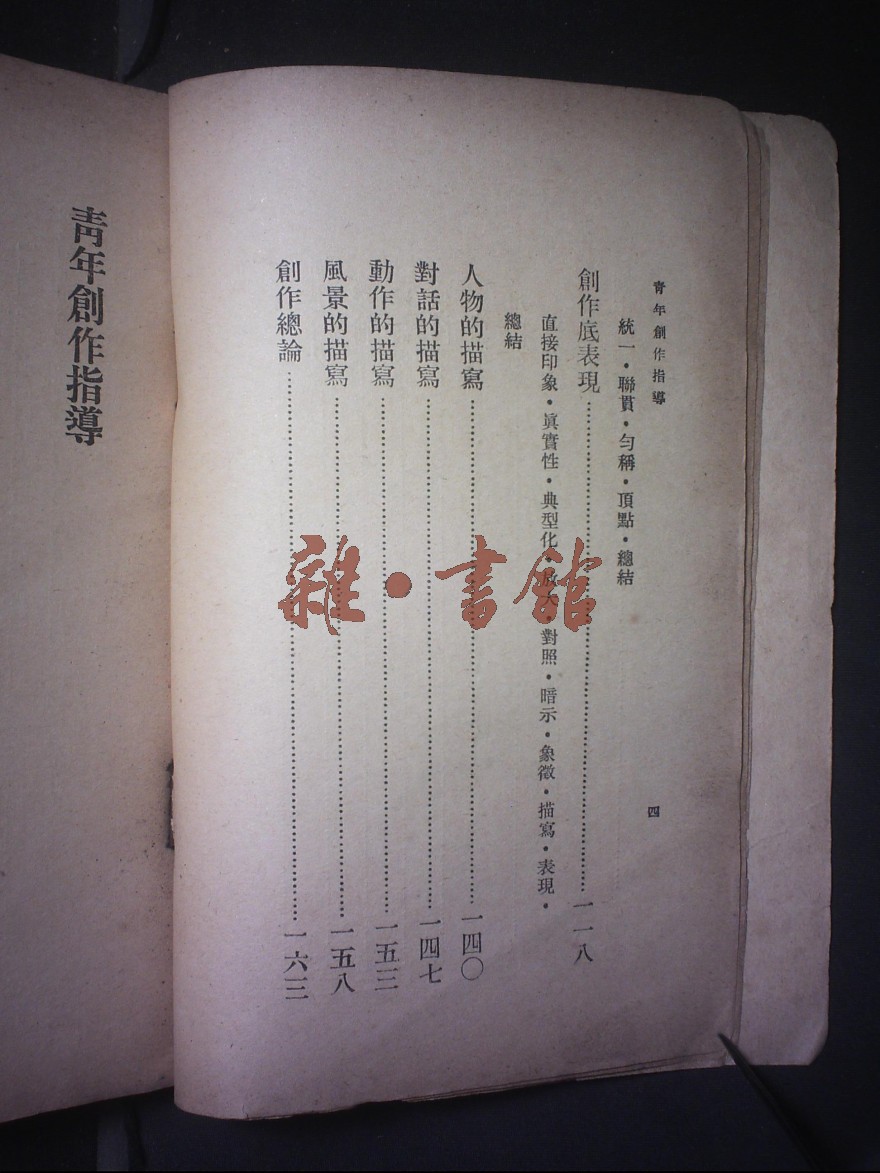 青年創作指導
四
統一・聯貫・勻稱・頂點・總結
創作底表現…………一一八
直接印象・眞實性・典型化・放大・對照・暗示・象徵・描寫・表現・
總結
人物的描寫…………一四〇
對話的描寫…………一四七
動作的描寫…………一五三
風景的描寫…………一五八
創作總論…………一六三
青年創作指導
雜・書館